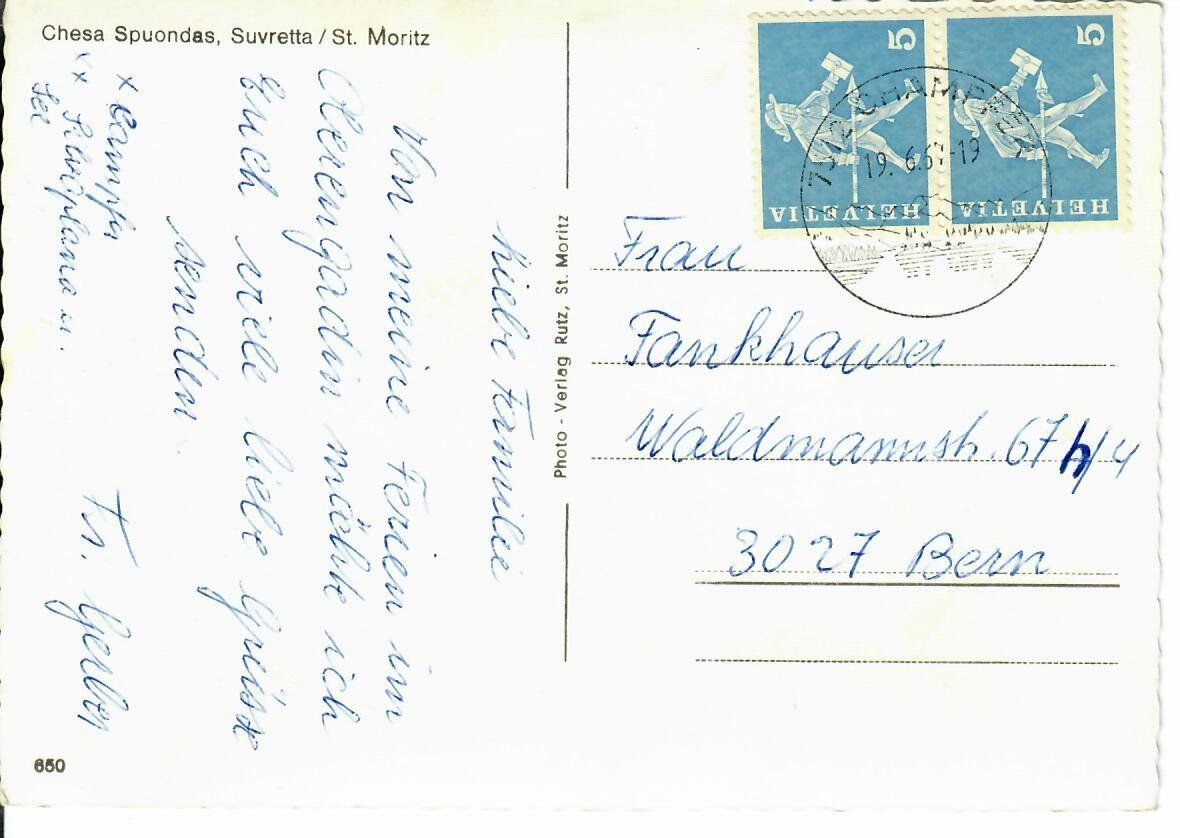 Chesa Spuondas, Suvretta / St. Moritz
x Campfer
xx Silvaplana u.
See
Liebe Familie
Von meine Ferien im
Oberengadin möchte ich
Euch viele liebe Grüsse
senden.
Fr. Gerber
Photo - Verlag Rutz, St. Moritz
5
HELVETIA
5
HELVETIA
CHAMPFÈR
19. 6.69-19
Frau
Fankhauser
Waldmannstr. 67 h/4
3027 Bern
650